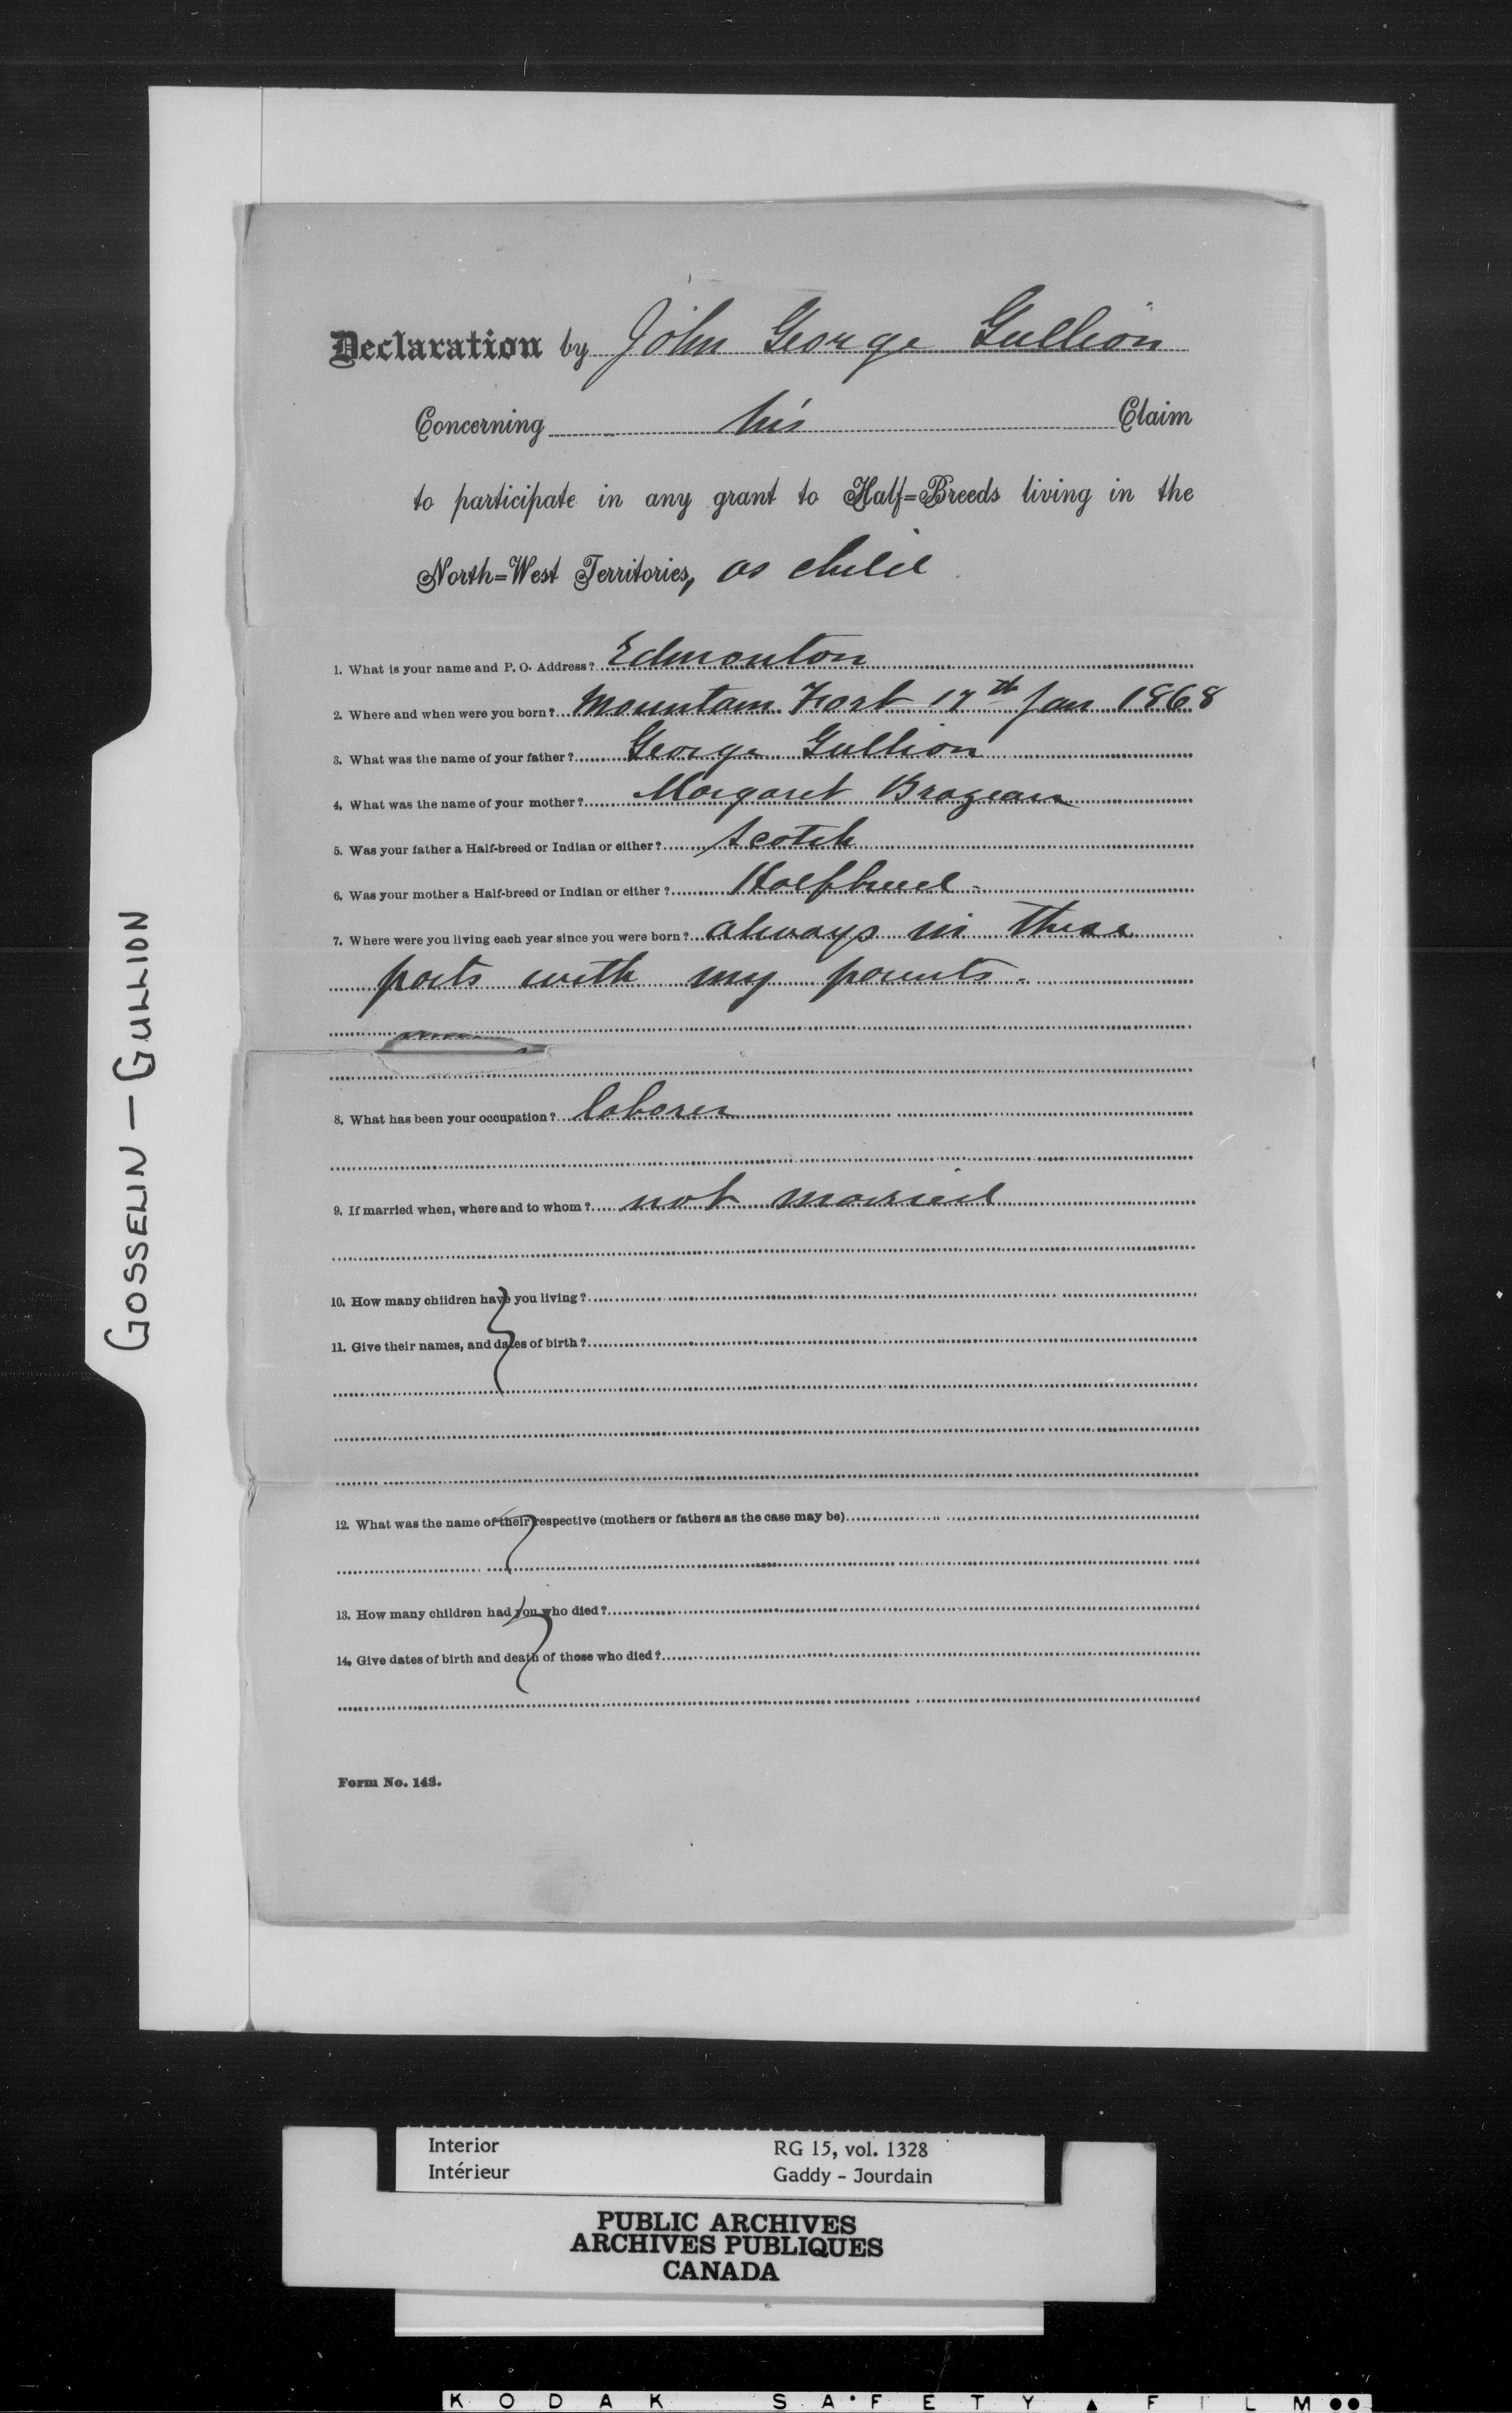 Declaration by John George Gullion
Concerning his Claim
to participate in any grant to Half=Breeds living in the
North=West Territories, as child
1. What is your name and P. O. Address? Edmonton
2. Where and when were you born? Mountain Fort 17th Jan 1868
3. What was the name of your father? George Gullion
4. What was the name of your mother? Margaret Brazeau
5. Was your father a Half-breed or Indian or either? Scotch
6. Was your mother a Half-breed or Indian or either? Halfbreed -
7. Where were you living each year since you were born? always in these
parts with my parents -
8. What has been your occupation? laborer
9. If married when, where and to whom? not married
10. How many children have you living?
11. Give their names, and dates of birth?
12. What was the name of their respective (mothers or fathers as the case may be)
13. How many children had you who died?
14. Give dates of birth and death of those who died?
Form No. 143.
GOSSELIN — GULLION
Interior RG 15, vol. 1328
Intérieur Gaddy - Jourdain
PUBLIC ARCHIVES
ARCHIVES PUBLIQUES
CANADA
KODAK SAFETY FILM